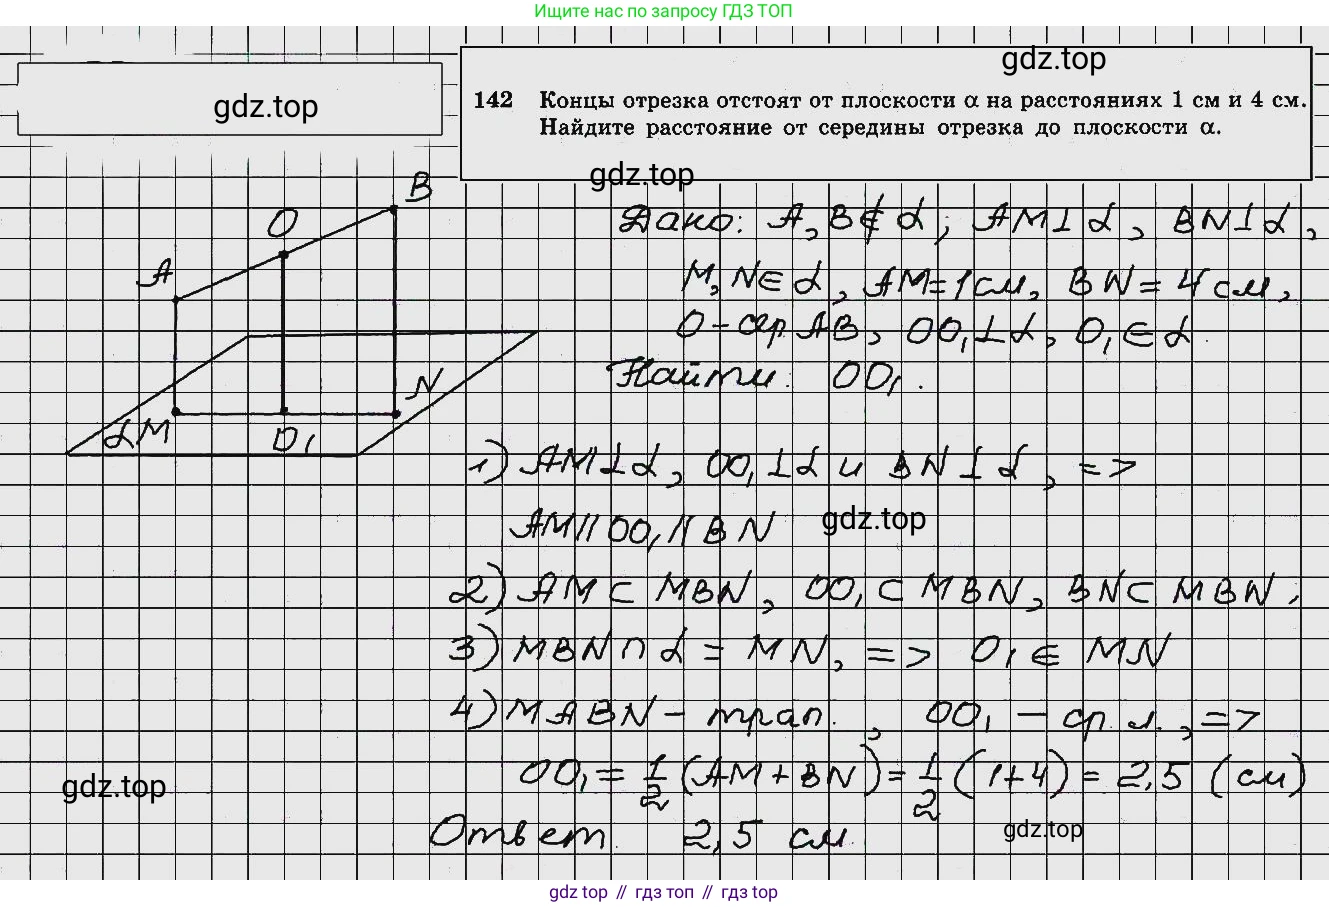 Ищите нас по запросу ГДЗ ТОП
gdz.top
gdz.top
142 Концы отрезка отстоят от плоскости α на расстояниях 1 см и 4 см.
Найдите расстояние от середины отрезка до плоскости α.
gdz.top
B
O
A
N
α M
O₁
Дано: A, B ∉ α, AM⊥α, BN⊥α,
M, N∈α, AM=1см, BN=4см,
O-сер. AB, OO₁⊥α, O₁∈α.
Найти: OO₁.
1) AM⊥α, OO₁⊥α и BN⊥α, =>
AM||OO₁||BN
gdz.top
2) AM⊂MBN, OO₁⊂MBN, BN⊂MBN,
3) MBN∩α=MN, => O₁∈MN
4) MABN-трап., OO₁-ср.л., =>
OO₁=1/2(AM+BN)=1/2(1+4)=2,5 (см)
gdz.top
Ответ 2,5 см
gdz.top
gdz top // гдз топ // gdz top